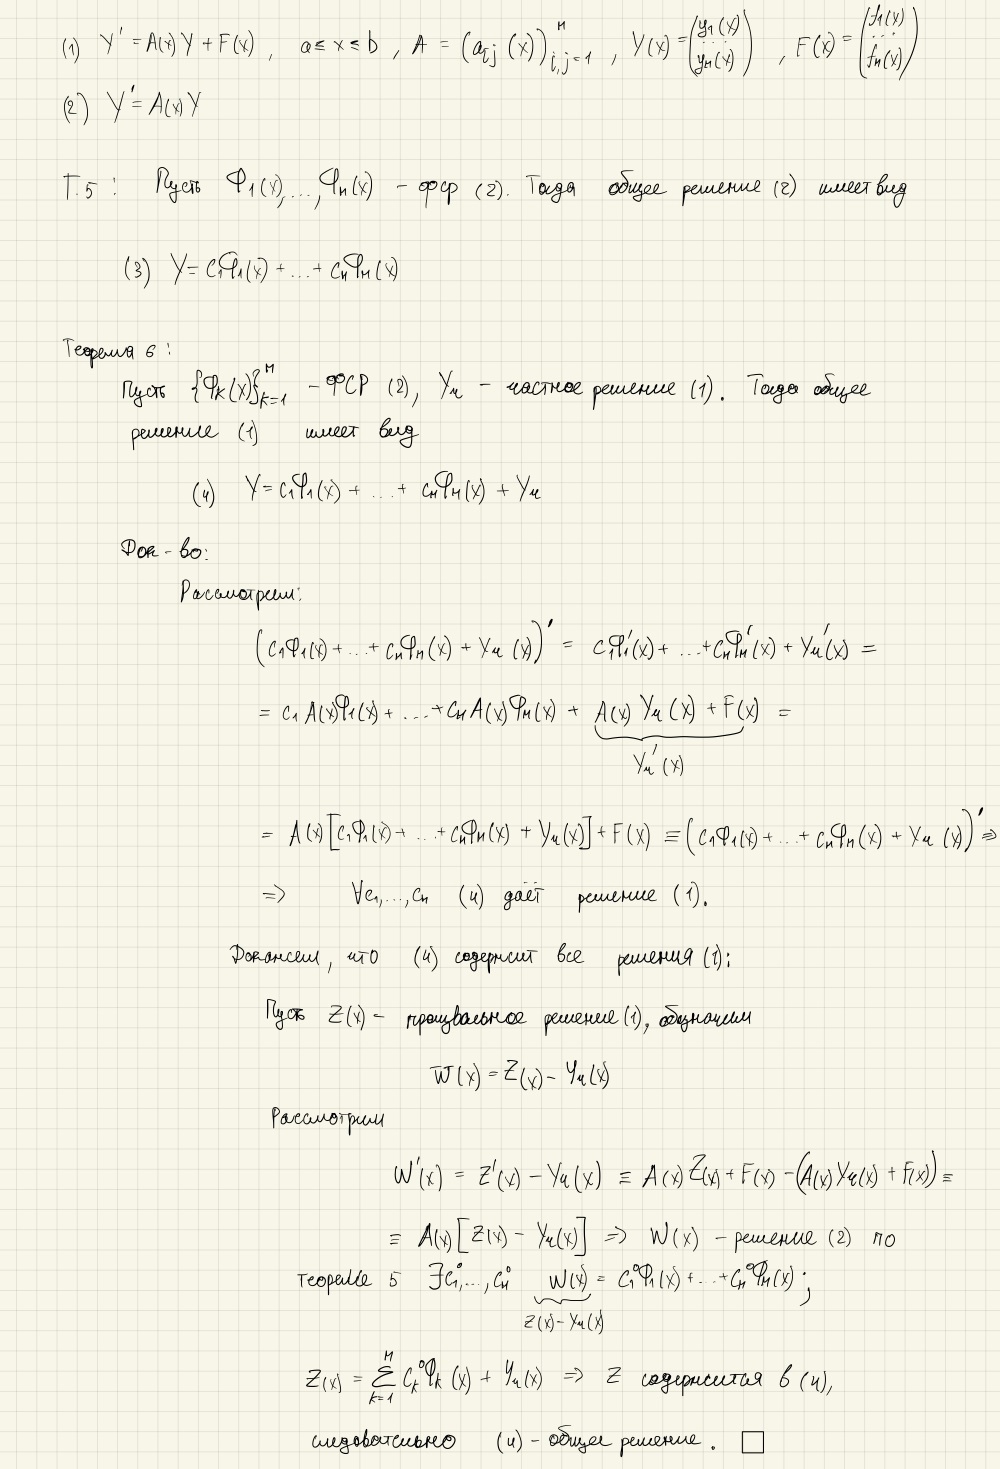 (1) Y' = A(x)Y + F(x) , a ≤ x ≤ b , A = (a_ij (x))^n_{i,j=1} , Y(x) = (y_1(x) ... y_n(x)) , F(x) = (f_1(x) ... f_n(x))
(2) Y' = A(x)Y
Т.5 : Пусть Φ_1(x),...,Φ_n(x) – фср (2). Тогда общее решение (2) имеет вид
(3) Y = c_1Φ_1(x) + ... + c_nΦ_n(x)
Теорема 6 :
Пусть {Φ_k(x)}^n_{k=1} – ФСР (2), Y_ч – частное решение (1). Тогда общее
решение (1) имеет вид
(4) Y = c_1Φ_1(x) + ... + c_nΦ_n(x) + Y_ч
Док-во:
Рассмотрим:
(c_1Φ_1(x) + ... + c_nΦ_n(x) + Y_ч (x))' = c_1Φ_1'(x) + ... + c_nΦ_n'(x) + Y_ч'(x) =
= c_1 A(x)Φ_1(x) + ... + c_n A(x)Φ_n(x) + A(x) Y_ч(x) + F(x) =
Y_ч'(x)
= A(x)[c_1Φ_1(x) + ... + c_nΦ_n(x) + Y_ч(x)] + F(x) ≡ (c_1Φ_1(x) + ... + c_nΦ_n(x) + Y_ч (x))' ⇒
⇒ ∀c_1,...,c_n (4) даёт решение (1).
Докажем, что (4) содержит все решения (1);
Пусть Z(x) – произвольное решение (1), обозначим
W(x) = Z(x) – Y_ч(x)
Рассмотрим
W'(x) = Z'(x) – Y_ч(x) ≡ A(x) Z(x) + F(x) – (A(x)Y_ч(x) + f(x)) ≡
≡ A(x)[Z(x) – Y_ч(x)] ⇒ W(x) – решение (2) по
теореме 5 ∃c_1^0,...,c_n^0 W(x) = c_1^0Φ_1(x) + ... + c_n^0Φ_n(x) ;
Z(x) – Y_ч(x)
Z(x) = Σ^n_{k=1} c_k^0Φ_k (x) + Y_ч(x) ⇒ Z содержится в (4),
следовательно (4) – общее решение . □